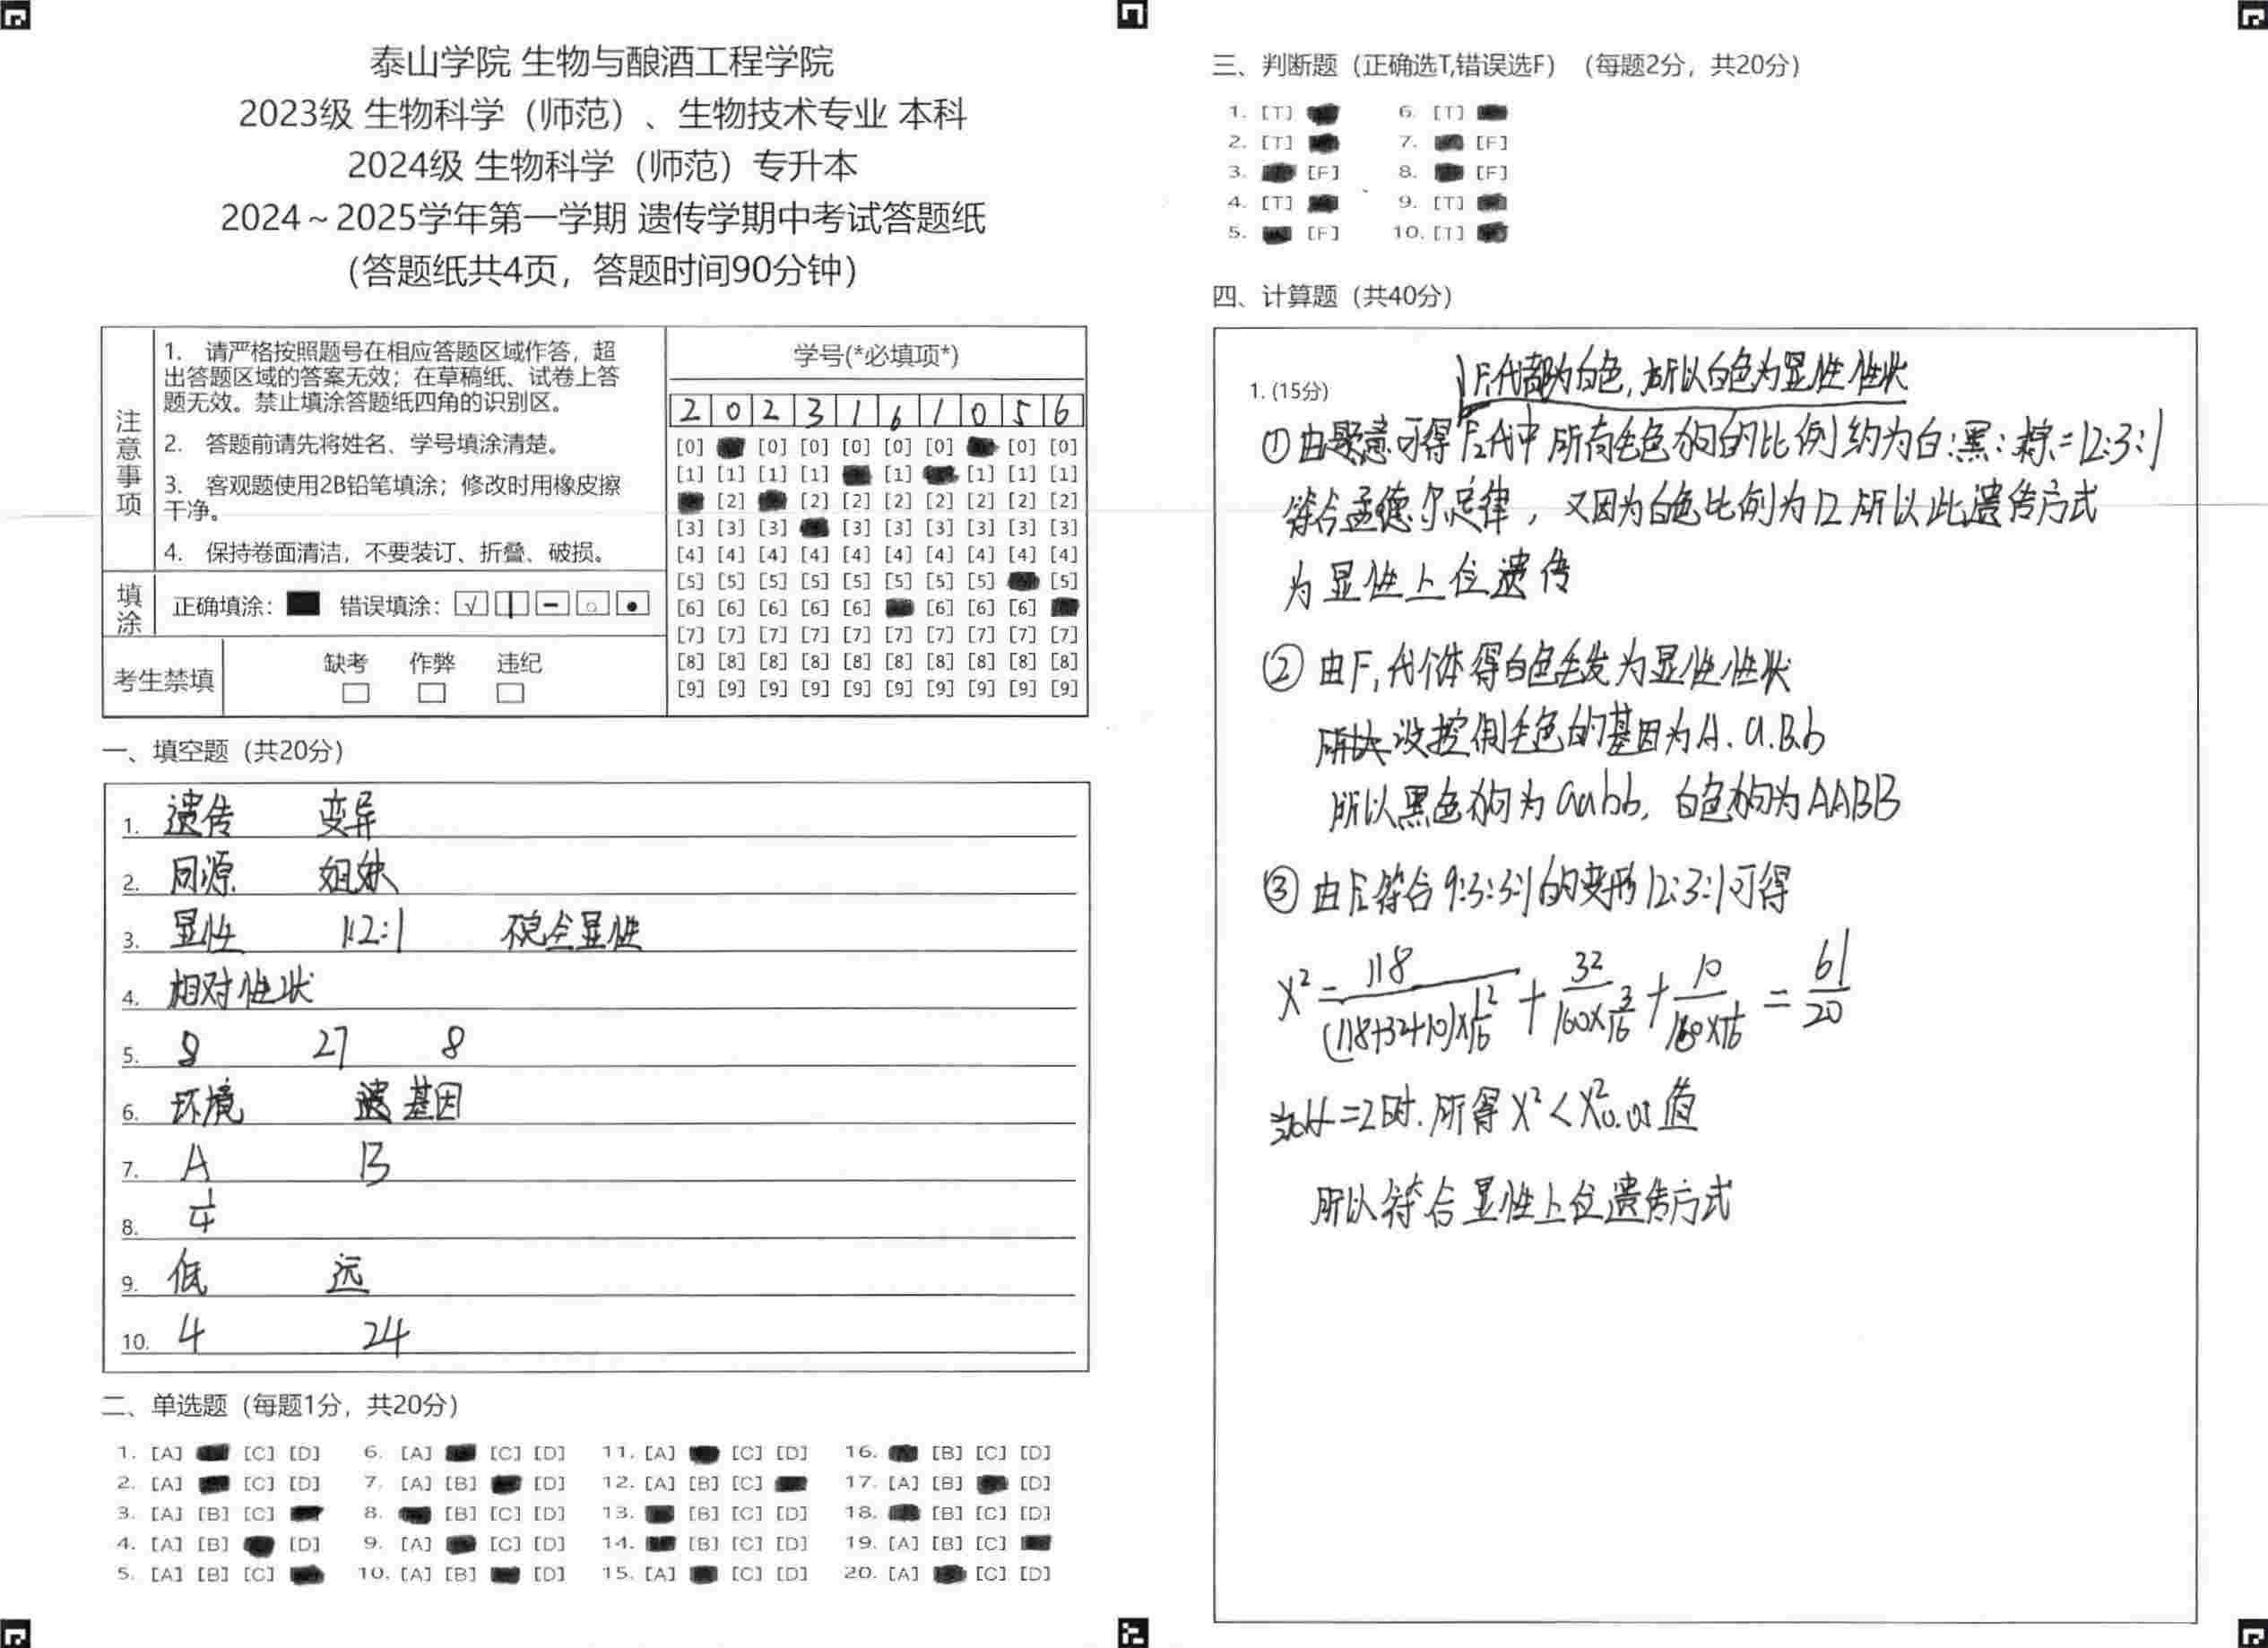 泰山学院 生物与酿酒工程学院
2023级 生物科学（师范）、生物技术专业 本科
2024级 生物科学（师范）专升本
2024～2025学年第一学期 遗传学期中考试答题纸
（答题纸共4页，答题时间90分钟）
注意事项
1. 请严格按照题号在相应答题区域作答，超
出答题区域的答案无效；在草稿纸、试卷上答
题无效。禁止填涂答题纸四角的识别区。
2. 答题前请先将姓名、学号填涂清楚。
3. 客观题使用2B铅笔填涂；修改时用橡皮擦
干净。
4. 保持卷面清洁，不要装订、折叠、破损。
填涂
正确填涂： 错误填涂：
考生禁填
缺考 作弊 违纪
学号(*必填项*)
2 0 2 3 1 6 1 0 5 6
[0] [0] [0] [0] [0] [0] [0] [0]
[1] [1] [1] [1] [1] [1] [1] [1]
[2] [2] [2] [2] [2] [2] [2] [2]
[3] [3] [3] [3] [3] [3] [3] [3] [3]
[4] [4] [4] [4] [4] [4] [4] [4] [4] [4]
[5] [5] [5] [5] [5] [5] [5] [5] [5]
[6] [6] [6] [6] [6] [6] [6] [6]
[7] [7] [7] [7] [7] [7] [7] [7] [7] [7]
[8] [8] [8] [8] [8] [8] [8] [8] [8] [8]
[9] [9] [9] [9] [9] [9] [9] [9] [9] [9]
一、填空题（共20分）
1. 遗传 变异
2. 同源 姐妹
3. 显性 1:2:1 不完全显性
4. 相对性状
5. 8 27 8
6. 环境 基因
7. A B
8. 1/4
9. 低 远
10. 4 24
二、单选题（每题1分，共20分）
1. [A] [C] [D] 6. [A] [C] [D] 11. [A] [C] [D] 16. [B] [C] [D]
2. [A] [C] [D] 7. [A] [B] [D] 12. [A] [B] [C] 17. [A] [B] [D]
3. [A] [B] [C] 8. [B] [C] [D] 13. [B] [C] [D] 18. [B] [C] [D]
4. [A] [B] [D] 9. [A] [C] [D] 14. [B] [C] [D] 19. [A] [B] [C]
5. [A] [B] [C] 10. [A] [B] [D] 15. [A] [C] [D] 20. [A] [C] [D]
三、判断题（正确选T,错误选F）（每题2分，共20分）
1. [T] 6. [T]
2. [T] 7. [F]
3. [F] 8. [F]
4. [T] 9. [T]
5. [F] 10. [T]
四、计算题（共40分）
1. (15分)
F₁代都为白色，所以白色为显性性状
①由题意可得F₂代中所有毛色狗的比例约为白:黑:棕=12:3:1
符合孟德尔定律，又因为白色比例为12所以此遗传方式
为显性上位遗传
② 由F₁代个体得白色毛发为显性性状
所以设控制毛色的基因为A.a.B.b
所以黑色狗为aabb, 白色狗为AABB
③ 由F₂符合9:3:3:1的变形12:3:1可得
X²=118/((118+32+10)×12/16)+32/(160×3/16)+10/(160×1/16)=61/20
当df=2时.所得X²<X²0.05值
所以符合显性上位遗传方式